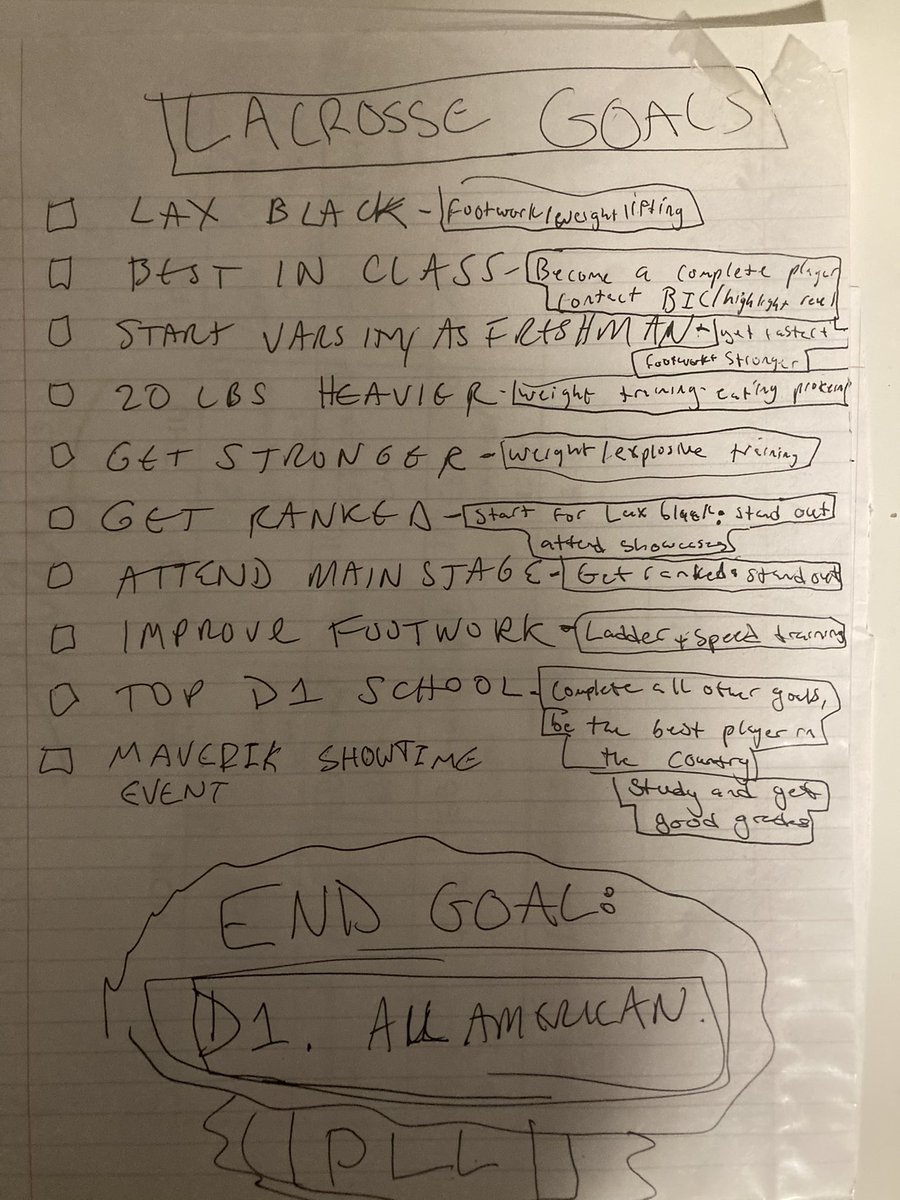 LACROSSE GOALS
LAX BLACK - Footwork/weightlifting
BEST IN CLASS - Become a complete player
contact BIC/highlight reel
START VARSITY AS FRESHMAN - get faster +
footwork + stronger
20 LBS HEAVIER - weight training - eating protein
GET STRONGER - weight/explosive training
GET RANKED - Start for Lax black + stand out
attend showcases
ATTEND MAIN STAGE - Get ranked + stand out
IMPROVE FOOTWORK - Ladder + speed training
TOP D1 SCHOOL - Complete all other goals,
be the best player in
the country
MAVERIK SHOWTIME
EVENT
Study and get
good grades
END GOAL:
D1. ALL AMERICAN.
PLL